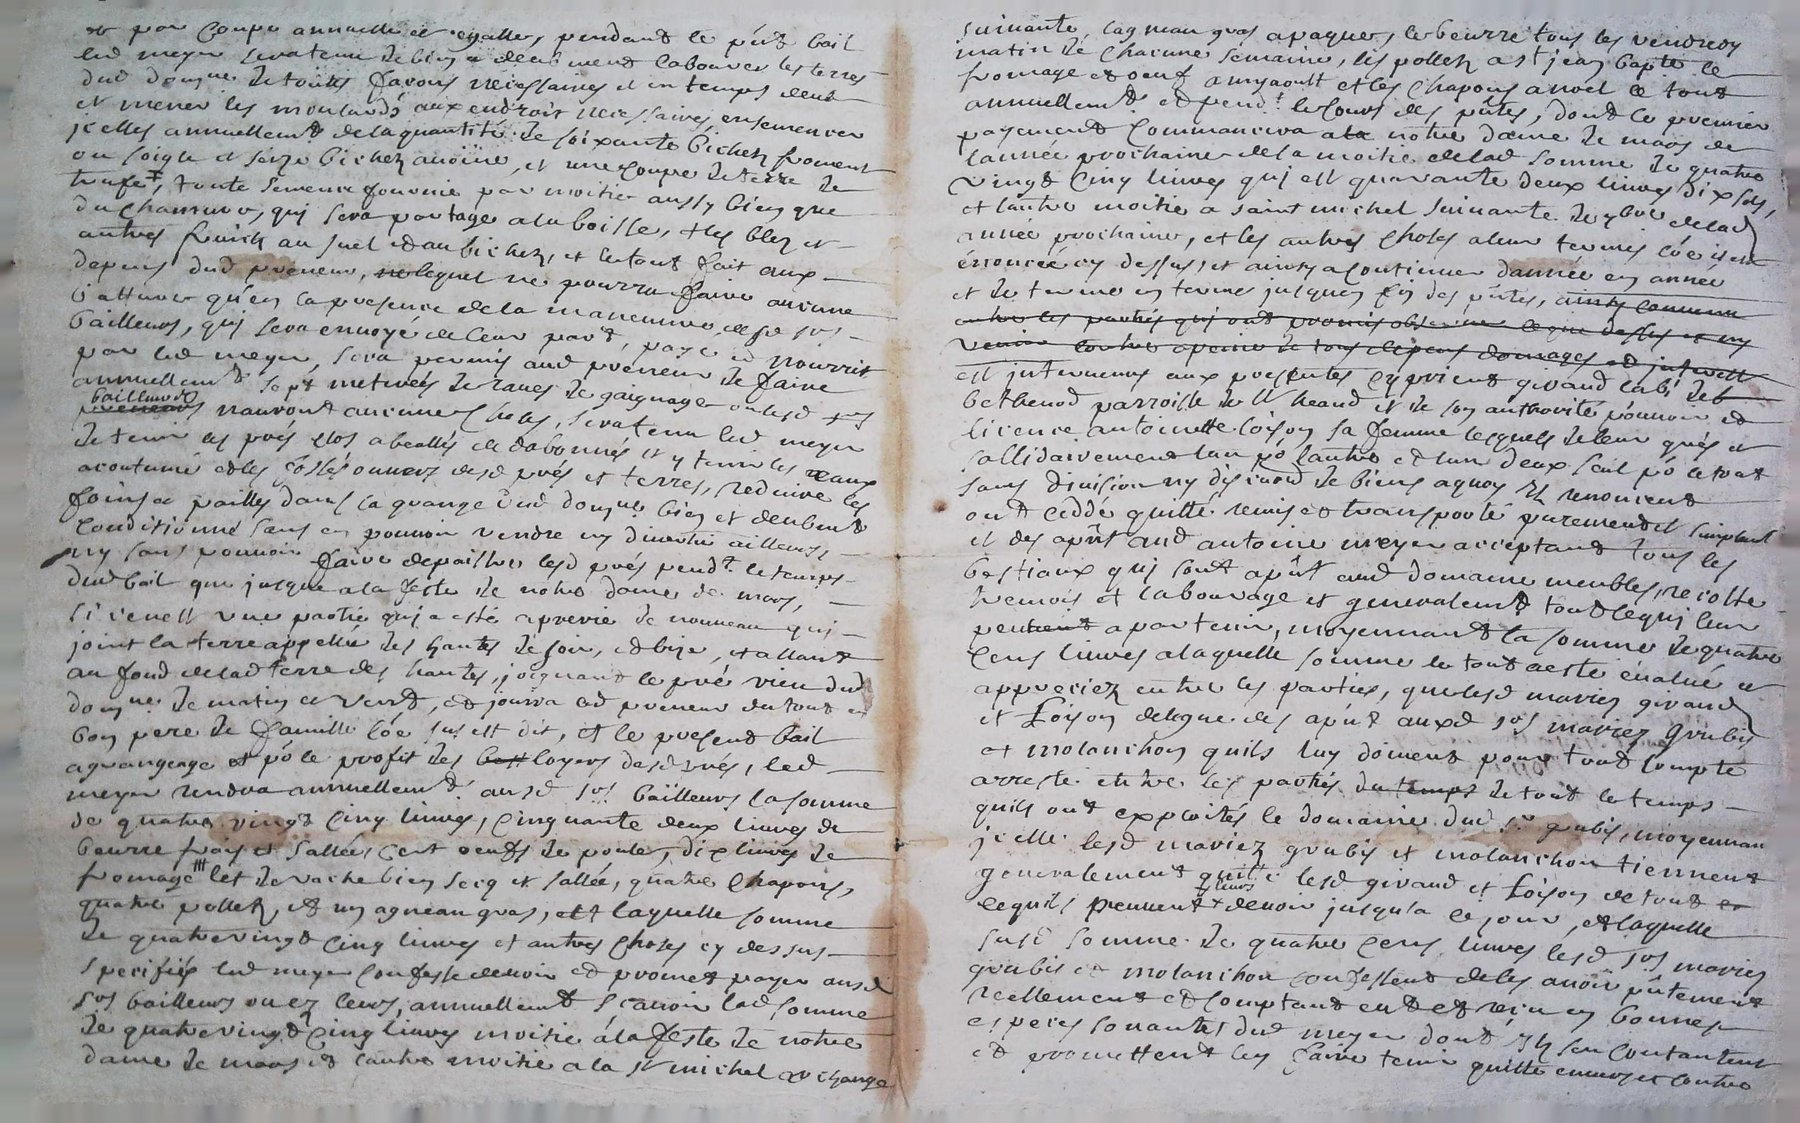 et par coupe annuelle et egalle, pendant le pñt bail
led meyer sera tenu de bien et deubment labourer les terres
dud domne de touttes façons necessaires et en temps deub
et mener les moulards aux endroit necessaires, ensemencer
jcelles annuellemt de la quantité de soixante bichez froment
ou soigle et seize bichez avoine, et une coupe de terre de
trufe, toutte semence fournie par moitier aussy bien que
du chanvre, qui sera partage a la boisse, et les blez et
autres fruicts au suel et au bichez, et le tout fait aux
depens dud preneur, lequel ne pourra faire aucune
battures qu'en la presence de la maneuvre desd srs
bailleurs, qui sera envoyé de leur part, payé et nourrit
par led meyer, sera permis aud preneur de faire
annuellemt sept meteréé de raves de gaignage ou lesd srs
bailleurs
preneurs n'auront aucunnes choses, sera tenu led meyer
de tenir les prés clos abeallés et dabonnés et y tenir les reaux
acoutumé et les fossés ouverz desd prés et terres, reduire les
foins et pailles dans la grange dud domne bien et deubmt
conditionné sans en pouvoir vendre ny divertir ailleurs,
ny sans pouvoir faire depaistre lesd prés pendt le temps
dud bail que jusque a la feste de notre dame de mars,
si ce n'est une partie qui a esté aprerie de nouveau qui
joint la terre appellée des hautes de soir, et bize, et allant
au fond de lad terre des hautes, joignant le pré vieu dud
domne de matin et vent, et jouira led preneur du tout en
bon pere de famille cõe sus est dit, et le present bail
a grangeage et põ le profit des best loyers desd prés, led
meyer rendra annuellemt ausd srs bailleurs la somme
de quatre vingt cinq livres, cinquante deux livres de
beurre frais et sallée, cent oeufs de poules, dix livres de
fromage let de vache bien secq et sallée, quatre chapons,
quatre pollez, et un agneau gras, et laquelle somme
de quatre vingt cinq livres et autres choses cy dessus
specifiés led meyer confesse devoir et promet payer ausd
srs bailleurs ou ez leurs, annuellemt sçavoir lad somme
de quatre vingt cinq livres moitie à la feste de notre
dame de mars et l'autre moitie a la st michel archange
suivante, lagneau gras a paques, le beurre tous les vendredy
matin de chacune semaine, les pollez a st jean bapte le
fromage et oeuf a myaoult et les chapons a noel le tout
annuellemt et pendt le cours des pñtes, dont le premier
payement commancera a la notre dame de mars de
lannée prochaine de la moitié de lad somme de quatre
vingt cinq livres qui est quarante deux livres dix sols,
et lautre moitie a saint michel suivante de 7bre de lad
année prochaine, et les autres choses a leur termes cõe il est
énoncée cy dessus, et ainsy a continuer dannée en année
et de terme en terme jusques fin des pñtes, ainsy convenu
entre les parties qui ont promis observer le que dessus et ny
venir contre a peine de tous depens domages et interest
est intervenus aux presentes Cyprient giraud labr de
bethenod parroisse de st heand et de son authorité pouvoir et
licence antoinette Loison sa femme lesquels de leur grés et
sollidairement lun põ lautre et lun deux seul põ le tout
sans division ny discution de biens a quoy ils renoncent
ont cédde quitté remis et transporté purement et simplemt
et des apñt aud antoine meyer acceptant tous les
bestiaux qui sont apñt aud domaine meubles, recolte
tremois et labourage et generalemt tout ce qui leur
peuttent apartenir, moyennant la somme de quatre
cens livres a laquelle somme le tout a esté évalué et
appreciez entre les parties, que lesd mariez giraud
et Loison delegue des apñt auxd srs mariez grubis
et molanchon quils luy doivent pour tout compte
arresté entre les parties du temps de tout le temps
quils ont exploités le domaine dud sr grubis, moyennan
jcelle lesd mariez grubis et molanchon tiennent
generalement quitte lesd giraud et Loison de tout ce
leurs
ce quils peuvent devoir jusqu'a ce jour, et laquelle
susd somme de quatre cens livres lesd srs mariez
grubis et molanchon confessent de les avoir pñtement
reellement et comptant eut et reçu en bonnes
especes sonantes dud meyer dont ils sen contantent
et promettent len faire tenir quitte envers et contre